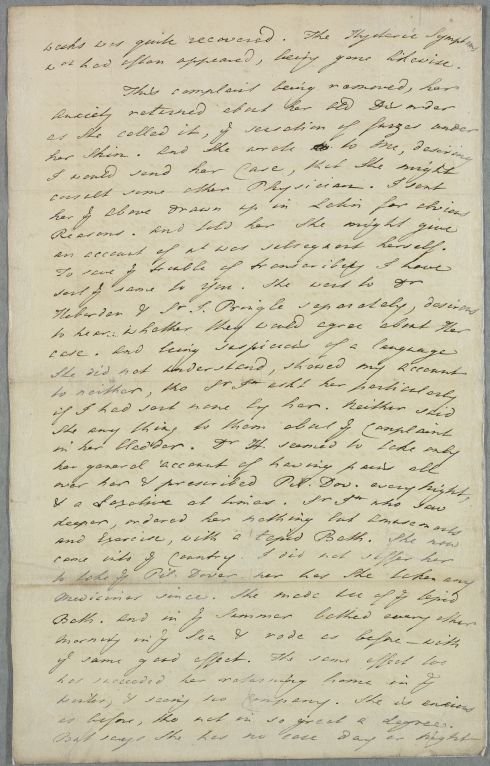 weeks was quite recovered. The Hysteric Symptoms
wch had often appeared, being gone likewise.
This complaint being removed, her
anxiety returned about her old Disorder
as She called it, ye sensation of fuzzes under
her Skin. And She wrote to me, desiring
I would send her Case, that She might
consult some other Physician. I sent
her ye above drawn up in Latin for obvious
Reasons. and told her She might give
an account of wt was subsequent herself.
To save ye trouble of transcribing I have
sent ye same to you. She went to Dr
Heberden & Sr J. Pringle separately, desirous
to hear whether they would agree about Her
case. And being suspicious of a language
She did not understand, showed my account
to neither, tho Sr Jn askt her particularly
if I had sent none by her. Neither said
She any thing to them about ye Complaint
in her Bladder. Dr H. seemed to take only
her general account of having pains all
over her & prescribed P. Dov. every night,
& a Laxative at times. Sr Jn who saw
deeper, ordered her nothing but amusements
and Exercise, with a tepid Bath. She now
came into ye Country. I did not suffer her
to take ye Pil. Dover. nor has She taken any
Medicines since. She made use of ye tepid
Bath. and in ye Summer bathed every other
morning in ye Sea & rode as before — with
ye same good effect. The same effect too
has succeeded her returning home in ye
winter, & seeing no Company. She is anxious
as before, tho not in so great a degree.
But says She has no ease day or night